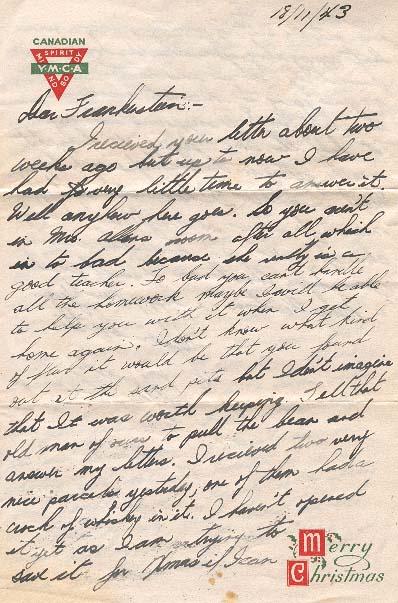 18/11/43
CANADIAN
SPIRIT
MIND BODY
Y·M·C·A
Dear Frankestain:-
I recieved your letter about two
weeks ago but up to now I have
had very little time to answer it.
Well anyhow here goes. So you ain't
in Mrs. room after all which
is to bad because she really is a
good teacher. To bad you can't handle
all the homework maybe I will be able
to help you with it when I get
home again. I don't know what kind
of it would be that you found
out at the sand pits but I don't imagine
that It was worth keeping. Tell that
old man of ours to pull the bean and
answer my letters. I recieved two very
nice parcels yesterday, one of them had a
crock of whiskey in it. I haven't opened
it yet as I am trying to
save it for Xmas if I can
Merry
Christmas